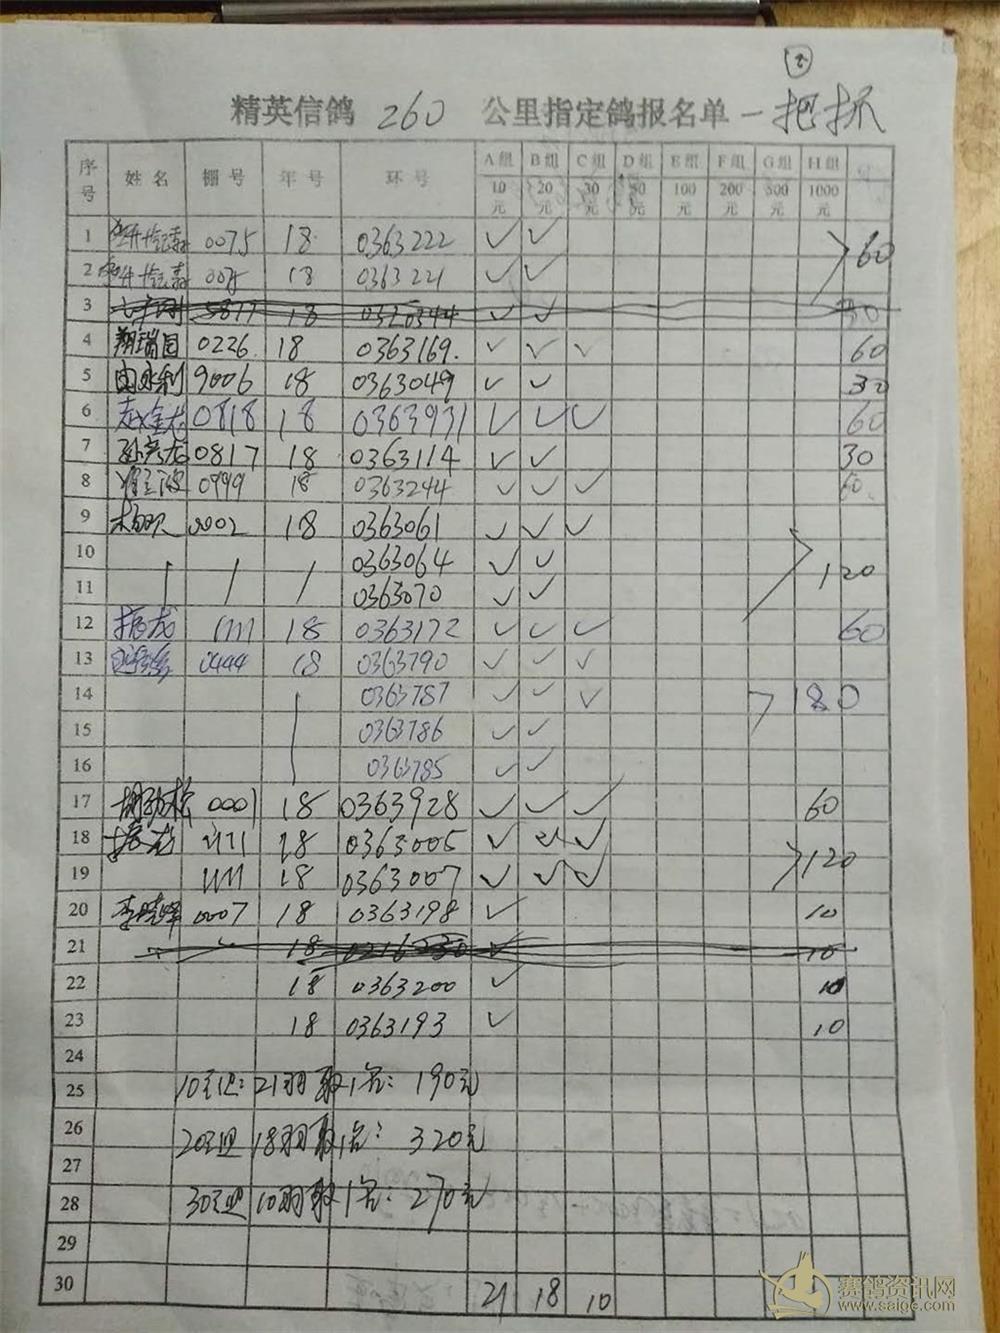 ②
精英信鸽 260 公里指定鸽报名单 一把抓
序号 姓名 棚号 年号 环号 A组 B组 C组 D组 E组 F组 G组 H组
10元 20元 30元 50元 100元 200元 500元 1000元
1 0075 18 0363222 ✓ ✓
60
2 0075 18 0363221 ✓ ✓
3 18 0320344 ✓ ✓ 30
4 翔瑞园 0226 18 0363169. ✓ ✓ ✓ 60
5 由永利 9006 18 0363049 ✓ ✓ 30
6 赵金龙 0818 18 0363931 ✓ ✓ ✓ 60
7 孙彦龙 0817 18 0363114 ✓ ✓ 30
8 0999 18 0363244 ✓ ✓ ✓ 60.
9 杨欢 0002 18 0363061 ✓ ✓ ✓
10 0363064 ✓ ✓
120
11 / / / 0363070 ✓ ✓
12 振龙 1111 18 0363172 ✓ ✓ ✓ 60
13 0444 18 0363790 ✓ ✓ ✓
14 0363787 ✓ ✓ ✓ 180
15 0363786 ✓ ✓
16 0363785 ✓ ✓
17 胡劲松 0001 18 0363928 ✓ ✓ ✓ 60
18 振龙 1111 18 0363005 ✓ ✓ ✓
120
19 1111 18 0363007 ✓ ✓ ✓
20 李晓峰 0007 18 0363198 ✓ 10
21 18 0216230 ✓ 10
22 18 0363200 ✓ 10
23 18 0363193 ✓ 10
24
25 10元组: 21羽取1名: 190元
26 20元组 18羽取1名: 320元
27
28 30元组 10羽取1名: 270元
29
30 21 18 10
赛鸽资讯网
www.saige.com